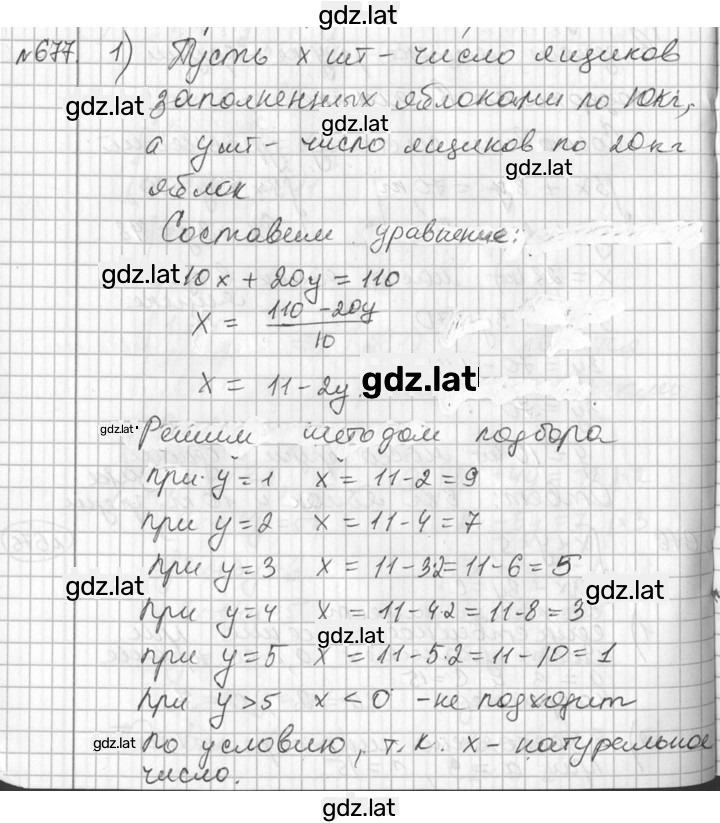 gdz.lat
№677. 1) Пусть x шт - число ящиков
gdz.lat заполненных яблоками по 10кг,
gdz.lat
а y шт - число ящиков по 20кг
gdz.lat
яблок
Составим уравнение:
gdz.lat 10x + 20y = 110
x = \frac{110 - 20y}{10}
x = 11 - 2y. gdz.lat
gdz.lat Решим методом подбора
при y = 1 x = 11 - 2 = 9
при y = 2 x = 11 - 4 = 7
при y = 3 x = 11 - 3·2 = 11 - 6 = 5
gdz.lat gdz.lat
при y = 4 x = 11 - 4·2 = 11 - 8 = 3
gdz.lat
при y = 5 x = 11 - 5·2 = 11 - 10 = 1
при y > 5 x < 0 - не подходит
gdz.lat по условию, т.к. x - натуральное
число.
gdz.lat